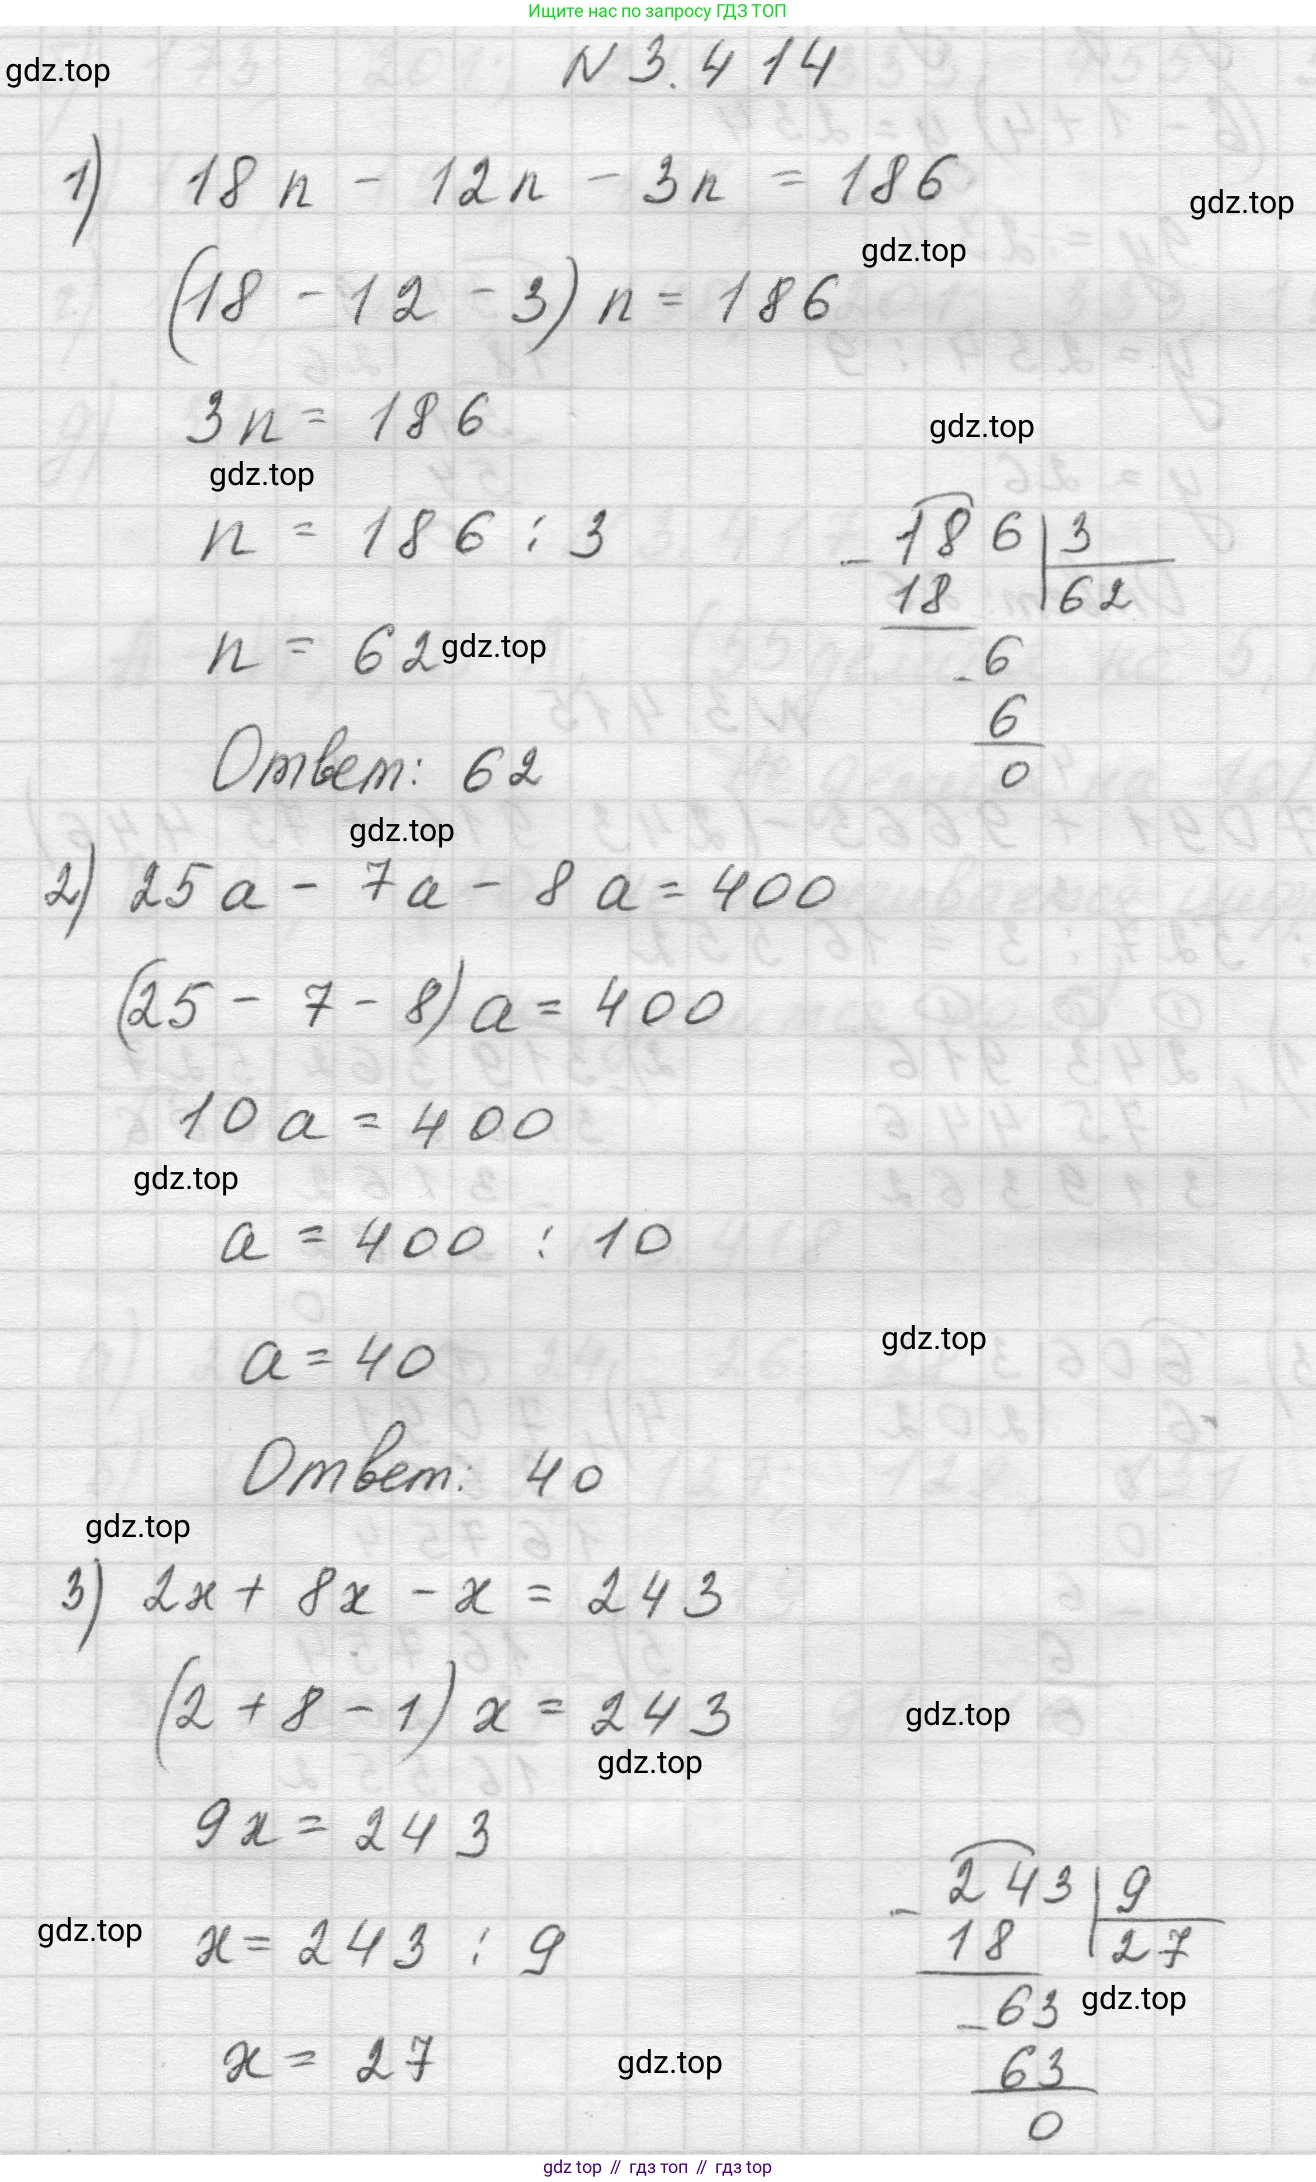 Ищите нас по запросу ГДЗ ТОП
N 3.414
gdz.top
1) 18n - 12n - 3n = 186
gdz.top
gdz.top
(18 - 12 - 3) n = 186
3n = 186
gdz.top
gdz.top
n = 186 : 3
- 186 | 3
18 | 62
n = 62
gdz.top
- 6
6
0
Ответ: 62
gdz.top
2) 25a - 7a - 8a = 400
(25 - 7 - 8) a = 400
10a = 400
gdz.top
a = 400 : 10
a = 40
gdz.top
Ответ: 40
gdz.top
3) 2x + 8x - x = 243
(2 + 8 - 1) x = 243
gdz.top
gdz.top
9x = 243
- 243 | 9
18 | 27
gdz.top
x = 243 : 9
- 63
gdz.top
63
0
x = 27
gdz.top
gdz top // гдз топ // гдз top